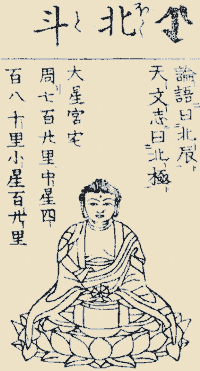 北斗
論語曰北辰
天文志曰北極
大星宮宅
周七百廿里中星四
百八十里小星百廿里